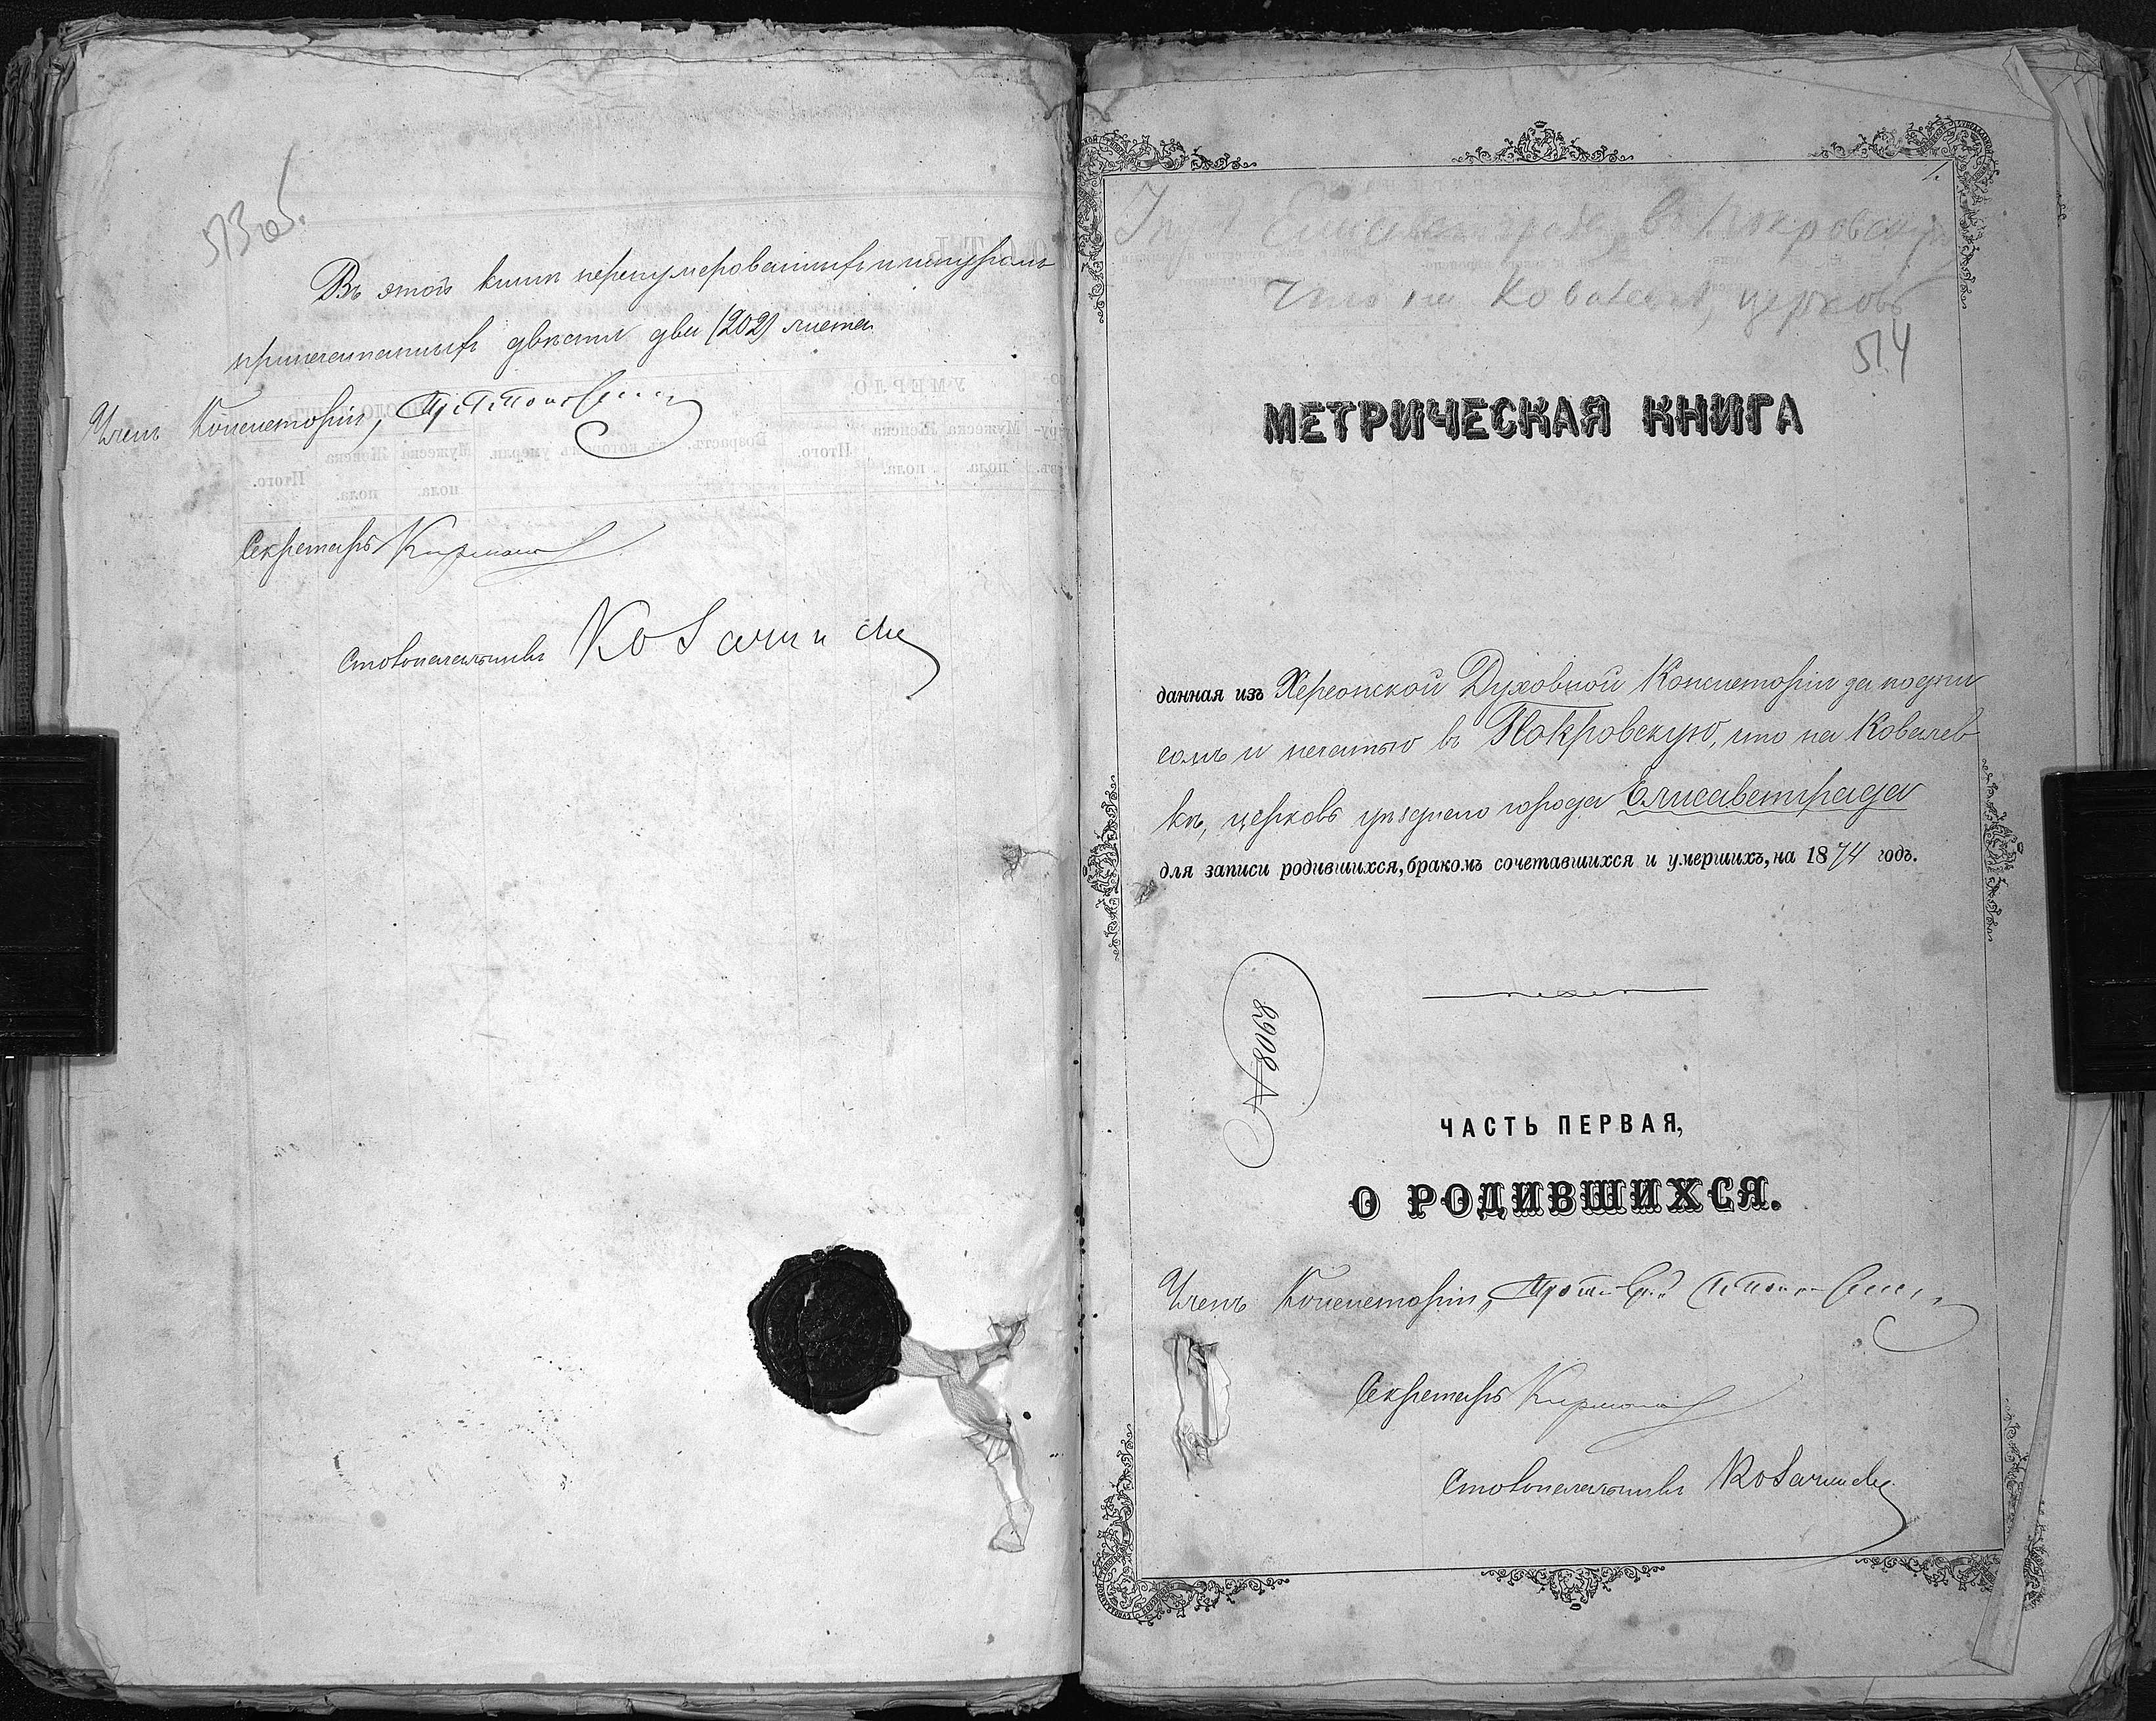 513 об.
Въ этой книгѣ перенумерованныхъ и шнуромъ
припечатанныхъ двѣсти два (202) листа.
Членъ Консисторіи,
Секретарь
Столоначальникъ
1.
Елисаветградъ, въ Покровскую
что на Ковалевкѣ, церковь
514
МЕТРИЧЕСКАЯ КНИГА
данная изъ Херсонской Духовной Консисторіи за подпи
сомъ и печатью въ Покровскую, что на Ковалев
кѣ, церковь уѣзднаго города Елисаветграда
для записи родившихся, бракомъ сочетавшихся и умершихъ, на 1874 годъ.
№ 8068
ЧАСТЬ ПЕРВАЯ,
О РОДИВШИХСЯ.
Членъ Консисторіи,
Секретарь
Столоначальникъ